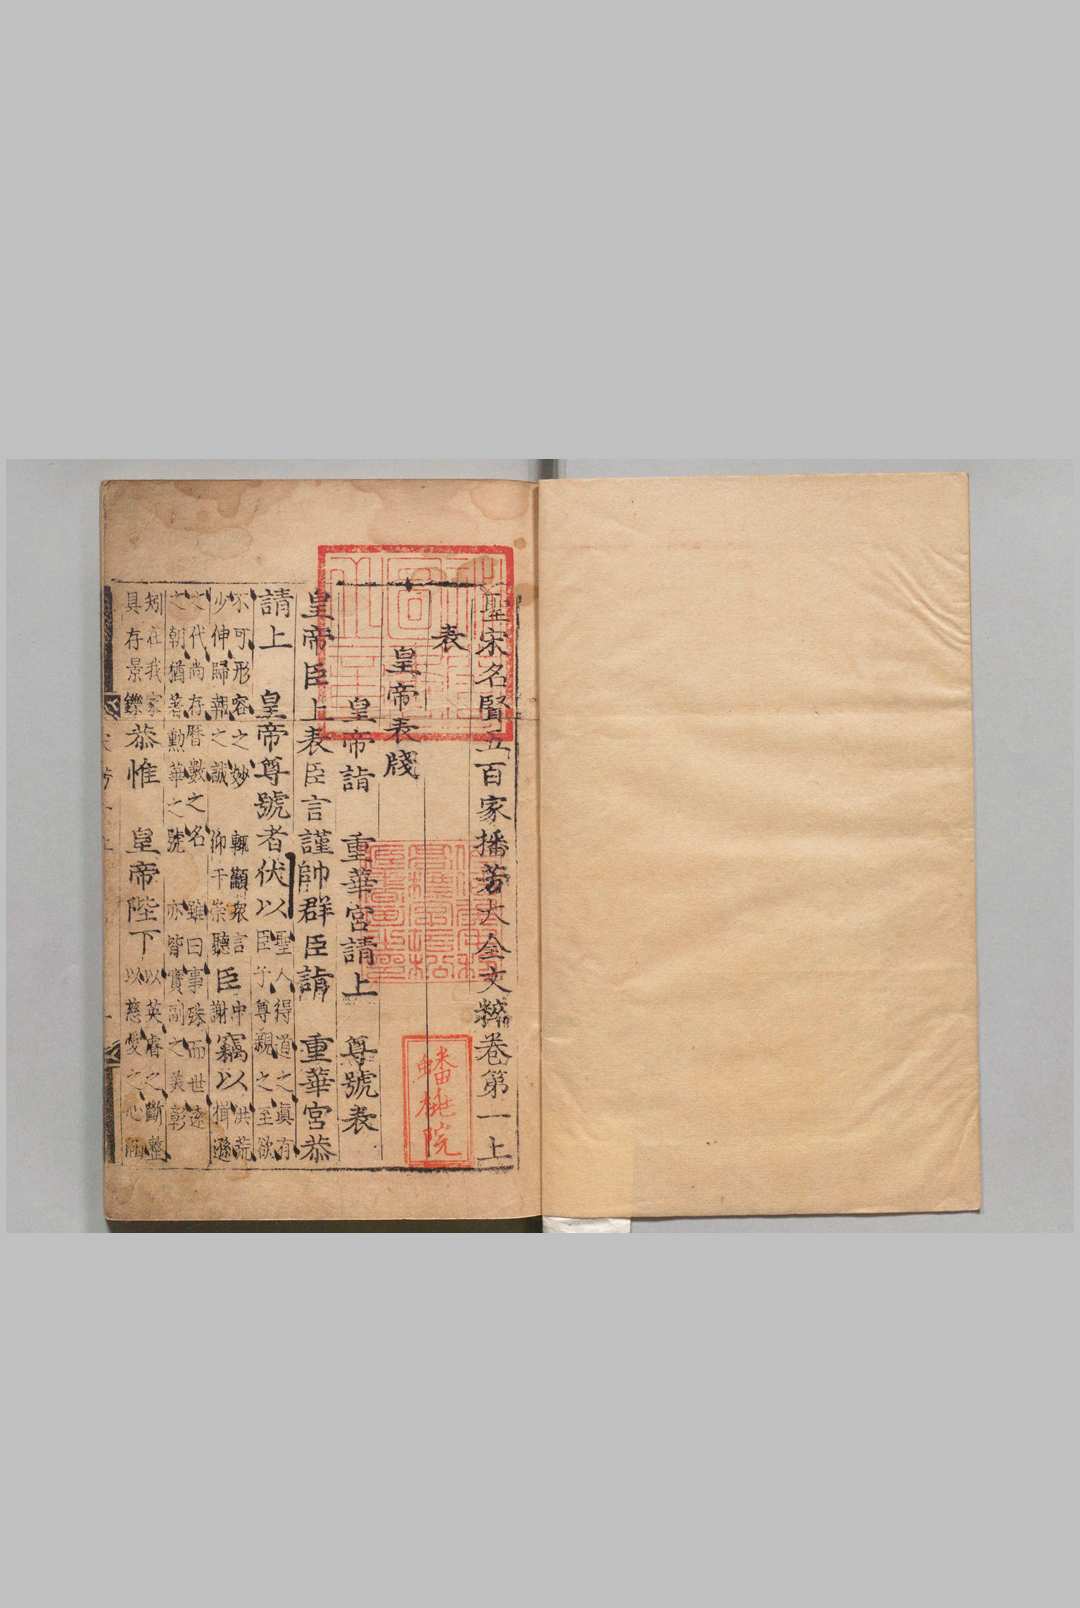 聖宋名賢五百家播芳大全文粹卷第一上
表
皇帝表牋
皇帝詣 重華宮請上 尊號表
皇帝臣上表臣言謹帥群臣詣 重華宮恭
請上 皇帝尊號者伏以聖人得道之眞有
臣子尊親之至欲
不可形容之妙 輒顓衆言
少伸歸親之誠 仰干崇聽臣中謝竊以洪荒
揖遜
之代尚存曆數之名 雖曰事殊而世遠
之朝猶著勲華之號 亦皆實副之美彰
矧在我家
具存景鑠恭惟 皇帝陛下以英睿之斷整
以慈愛之心
蟠桃院